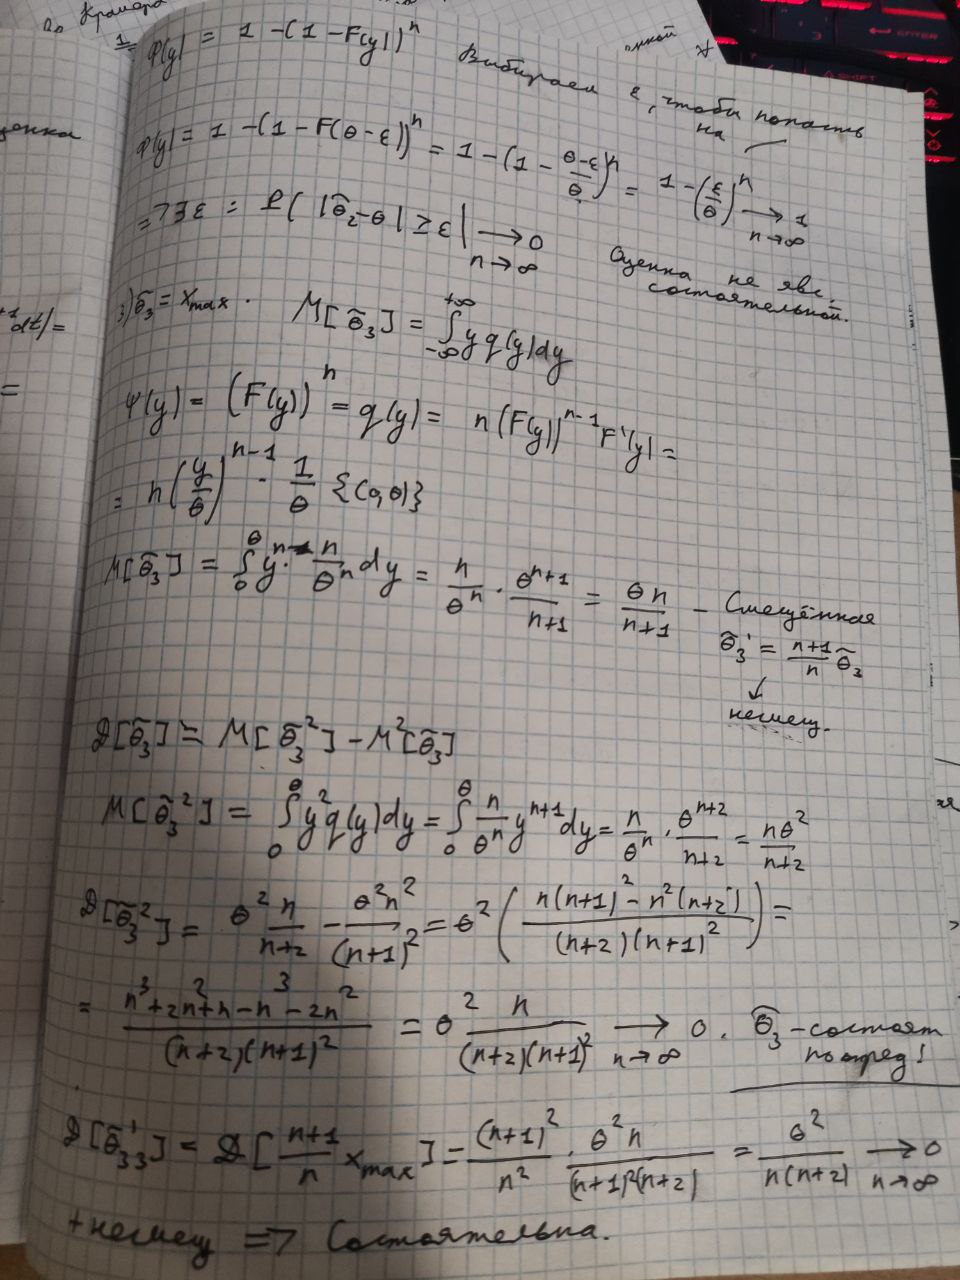 По Крамера
1
ϕ(y) = 1 - (1 - F(y))^n
Выбираем ε, чтобы попасть
на
ϕ(y) = 1 - (1 - F(θ-ε))^n = 1 - (1 - \frac{θ-ε}{θ})^n = 1 - (\frac{ε}{θ})^n \xrightarrow[n→∞]{} 1
=> ∃ε : P( |θ̃_2 - θ| ≥ ε| \xrightarrow[n→∞]{} 0
Оценка не явс.
состоятельной.
3) θ̃_3 = x_{max} . M[θ̃_3] = \int_{-∞}^{+∞} y q(y) dy
Ψ(y) = (F(y))^n = q(y) = n (F(y))^{n-1} F'(y) =
= n (\frac{y}{θ})^{n-1} · \frac{1}{θ} {(0,θ)}
M[θ̃_3] = \int_0^θ y^n · \frac{n}{θ^n} dy = \frac{n}{θ^n} · \frac{θ^{n+1}}{n+1} = \frac{θn}{n+1} - Смещённая
θ̃_3' = \frac{n+1}{n} θ̃_3
↓
несмещ.
D[θ̃_3] = M[θ̃_3^2] - M^2[θ̃_3]
M[θ̃_3^2] = \int_0^θ y^2 q(y) dy = \int_0^θ \frac{n}{θ^n} y^{n+1} dy = \frac{n}{θ^n} · \frac{θ^{n+2}}{n+2} = \frac{nθ^2}{n+2}
D[θ̃_3^2] = θ^2 \frac{n}{n+2} - \frac{θ^2 n^2}{(n+1)^2} = θ^2 ( \frac{n(n+1)^2 - n^2(n+2)}{(n+2)(n+1)^2} ) =
= \frac{n^3 + 2n^2 + n - n^3 - 2n^2}{(n+2)(n+1)^2} = θ^2 \frac{n}{(n+2)(n+1)^2} \xrightarrow[n→∞]{} 0 . θ̃_3 - состоят
по опред!
D[θ̃_{33}'] = D[\frac{n+1}{n} x_{max}] = \frac{(n+1)^2}{n^2} · \frac{θ^2 n}{(n+1)^2(n+2)} = \frac{θ^2}{n(n+2)} \xrightarrow[n→∞]{} 0
+ несмещ => Состоятельна.